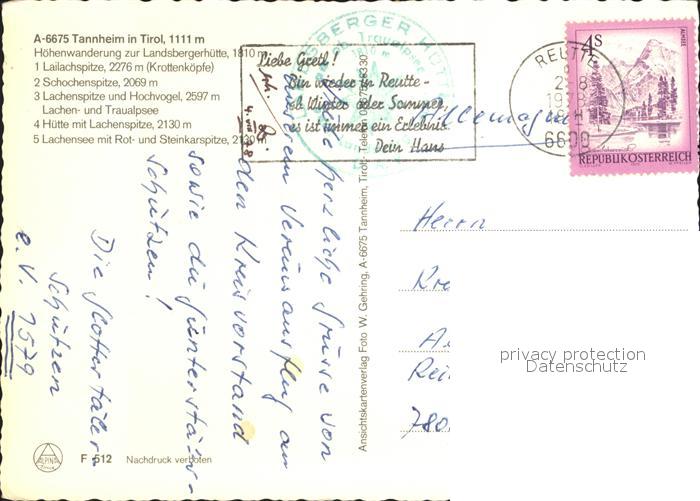 A-6675 Tannheim in Tirol, 1111 m
Höhenwanderung zur Landsbergerhütte, 1810 m
1 Lailachspitze, 2276 m (Krottenköpfe)
2 Schochenspitze, 2069 m
3 Lachenspitze und Hochvogel, 2597 m
Lachen- und Traualpsee
4 Hütte mit Lachenspitze, 2130 m
5 Lachensee mit Rot- und Steinkarspitze, 2
Liebe Gretl!
Bin wieder in Reutte -
ob Winter oder Sommer,
es ist immer ein Erlebnis
Dein Hans
REUTTE
6600
4S
ALMSEE
REPUBLIK ÖSTERREICH
herzliche Grüsse von
unserem Vereinsausflug an
den Kreisvorstand
sowie die Günterstäls-
Schützen!
Die Glottertäler
Schützen
e.V. 1579
Ansichtskartenverlag Foto W. Gehring, A-6675 Tannheim, Tirol
Herrn
780
privacy protection
Datenschutz
ALPINA
F 512 Nachdruck verboten